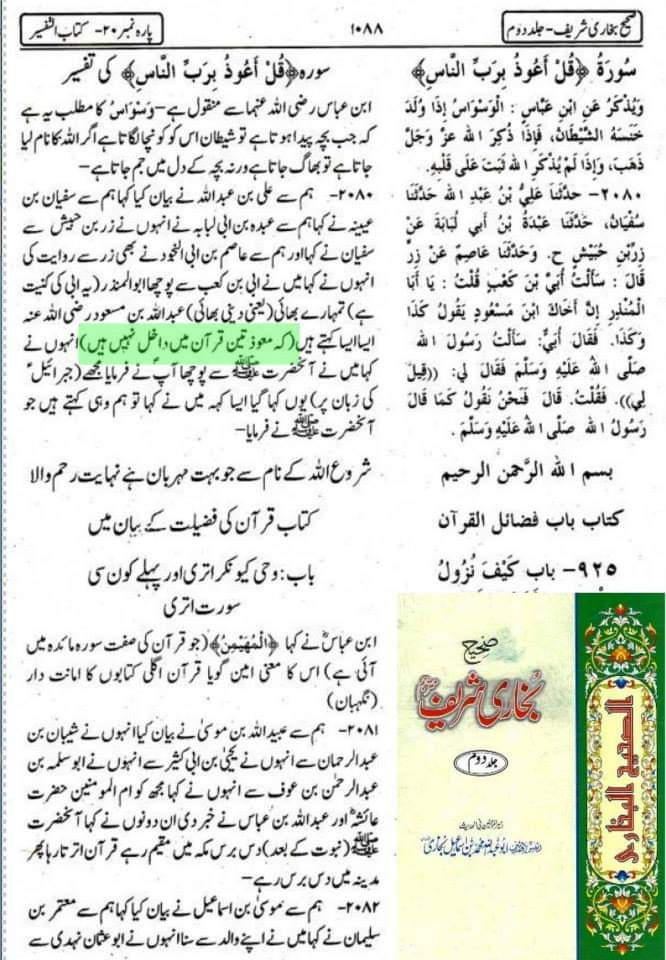 صحیح بخاری شریف - جلد دوم
۱۰۸۸
پارہ نمبر ۲۰- کتاب التفسیر
سُورَةُ ﴿قُلْ أَعُوذُ بِرَبِّ النَّاسِ﴾
وَيُذْكَرُ عَنِ ابْنِ عَبَّاسٍ : الْوَسْوَاسُ إِذَا وُلِدَ
خَنَسَهُ الشَّيْطَانُ، فَإِذَا ذُكِرَ الله عزَّ وَجَلَّ
ذَهَبَ، وَإِذَا لَمْ يُذْكَرِ الله ثَبَتَ عَلَى قَلْبِهِ.
۲۰۸۰- حدَّثَنَا عَلِيُّ بْنُ عَبْدِ الله حَدَّثَنَا
سُفْيَانُ، حَدَّثَنَا عَبْدَةُ بْنُ أَبِي لُبَابَةَ عَنْ
زِرِّبْنِ حُبَيْشٍ ح. وَحَدَّثَنَا عَاصِمٌ عَنْ زِرٍّ
قَالَ : سَأَلْتُ أُبَيَّ بْنَ كَعْبٍ قُلْتُ : يَا أَبَا
الْمُنْذِرِ إِنَّ أَخَاكَ ابْنَ مَسْعُودٍ يَقُولُ كَذَا
وَكَذَا. فَقَالَ أُبَيٌّ: سَأَلْتُ رَسُولَ الله
صَلَّى الله عَلَيْهِ وَسَلَّمَ فَقَالَ لِي: ((قِيلَ
لِي)). فَقُلْتُ. قَالَ فَنَحْنُ نَقُولُ كَمَا قَالَ
رَسُولُ الله صَلَّى الله عَلَيْهِ وَسَلَّمَ.
بسم الله الرَّحمن الرحيم
كتاب باب فضائل القرآن
۹۲۵- باب كَيْفَ نُزُولُ
سورہ ﴿قُلْ أَعُوذُ بِرَبِّ النَّاسِ﴾ کی تفسیر
ابن عباس رضی اللہ عنہما سے منقول ہے- وَسْوَاسُ کا مطلب یہ ہے
کہ جب بچہ پیدا ہوتا ہے تو شیطان اس کو کونچا لگاتا ہے اگر اللہ کا نام لیا
جاتا ہے تو بھاگ جاتا ہے ورنہ بچہ کے دل میں جم جاتا ہے-
۲۰۸۰- ہم سے علی بن عبداللہ نے بیان کیا کہا ہم سے سفیان بن
عیینہ نے کہا ہم سے عبدہ بن ابی لبابہ نے انہوں نے زر بن حبیش سے
سفیان نے کہا اور ہم سے عاصم بن ابی النجود نے بھی زر سے روایت کی
انہوں نے کہا میں نے ابی بن کعب سے پوچھا ابوالمنذر (یہ ابی کی کنیت
ہے) تمہارے بھائی (یعنی دینی بھائی) عبداللہ بن مسعود رضی اللہ عنہ
ایسا ایسا کہتے ہیں (کہ معوذتین قرآن میں داخل نہیں ہیں) انہوں نے
کہا میں نے آنحضرت ﷺ سے پوچھا آپ نے فرمایا مجھے (جبرائیل ؑ
کی زبان پر) یوں کہا گیا ایسا کہہ میں نے کہا تو ہم وہی کہتے ہیں جو
آنحضرت ﷺ نے فرمایا-
شروع اللہ کے نام سے جو بہت مہربان ہے نہایت رحم والا
کتاب قرآن کی فضیلت کے بیان میں
باب: وحی کیونکر اتری اور پہلے کون سی
سورت اتری
ابن عباسؓ نے کہا ﴿اَلْمُهَيْمِنُ﴾ (جو قرآن کی صفت سورہ مائدہ میں
آئی ہے) اس کا معنی امین گویا قرآن اگلی کتابوں کا امانت دار
(نگہبان)
۲۰۸۱- ہم سے عبیداللہ بن موسیٰ نے بیان کیا انہوں نے شیبان بن
عبدالرحمان سے انہوں نے یحییٰ بن ابی کثیر سے انہوں نے ابو سلمہ بن
عبدالرحمٰن بن عوف سے انہوں نے کہا مجھ کو ام المومنین حضرت
عائشہؓ اور عبداللہ بن عباس نے خبر دی ان دونوں نے کہا آنحضرت
ﷺ (نبوت کے بعد) دس برس مکہ میں مقیم رہے قرآن اترتا رہا پھر
مدینہ میں دس برس رہے-
۲۰۸۲- ہم سے موسیٰ بن اسماعیل نے بیان کیا کہا ہم سے معتمر بن
سلیمان نے کہا میں نے اپنے والد سے سنا انہوں نے ابو عثمان نہدی سے
صحیح
بخاری شریف
جلد دوم
ابو عبداللہ محمد بن اسماعیل بخاری
الصحيح البخاري